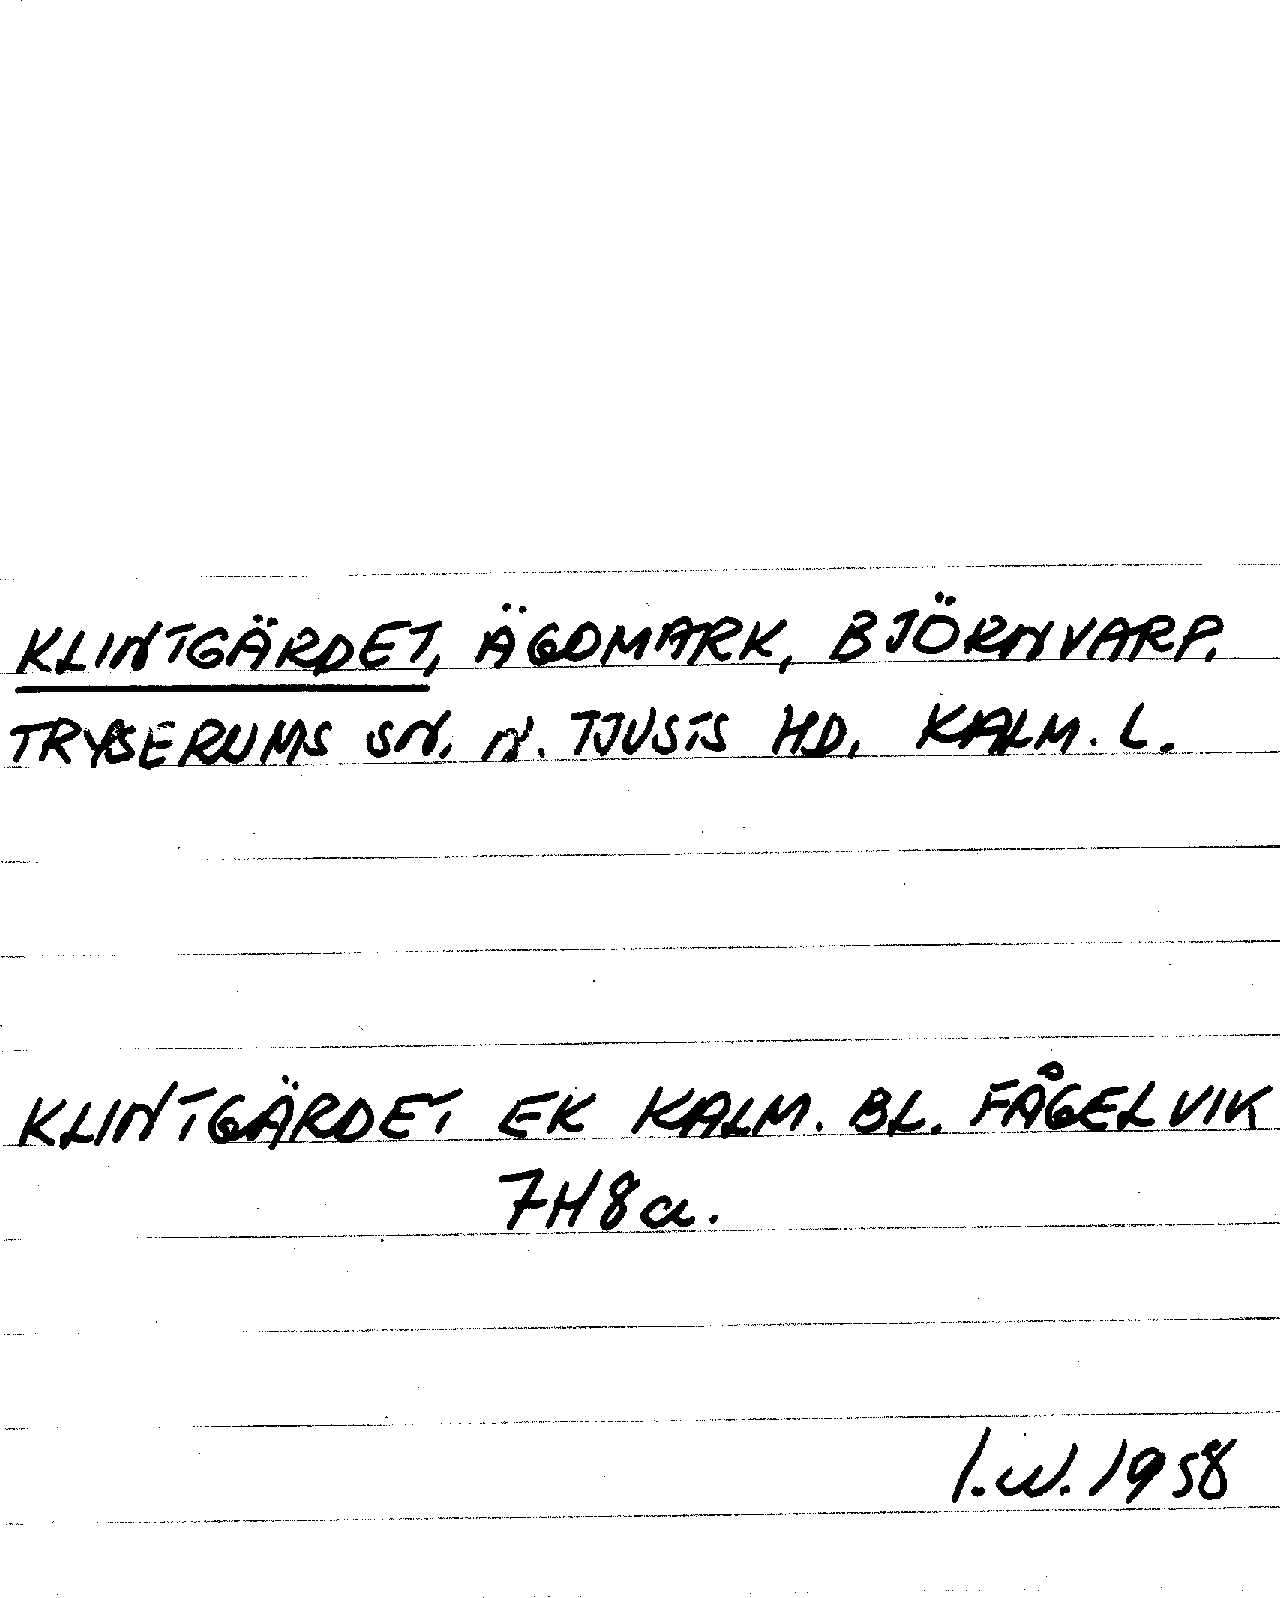 KLINTGÄRDET, ÄGOMARK, BJÖRNVARP,
TRYSERUMS SN. N. TJUSTS HD. KALM. L.
KLINTGÄRDET EK KALM. BL. FÅGELVIK
7H8a.
I.W. 1958